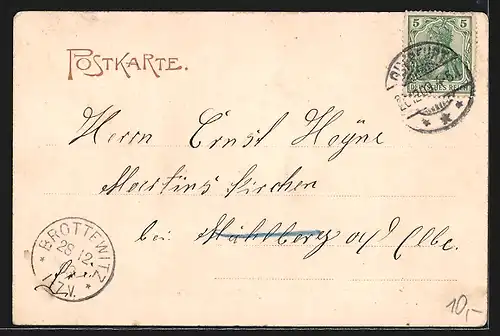 POSTKARTE.
5 5
DEUTSCHES REICH
QUERFURT
Herrn Ernst Heyne
Martins Kirchen
bei Mühlberg a/ Elbe.
BROTTEWITZ
28 12
10,-